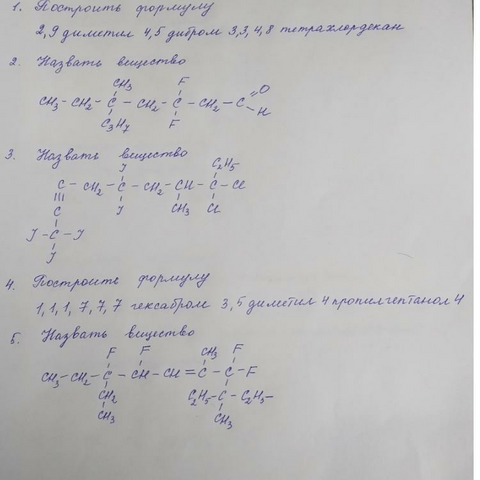 1. Построить формулу
2,9 диметил 4,5 дибром 3,3,4,8 тетрахлордекан
2. Назвать вещество
CH₃ F
CH₃ - CH₂ - C - CH₂ - C - CH₂ - C = O
C₃H₇ F H
3. Назвать вещество
J C₂H₅
C - CH₂ - C - CH₂ - CH - C - Cl
≡ J CH₃ Cl
C
J - C - J
J
4. Построить формулу
1,1,1,7,7,7 гексабром 3,5 диметил 4 пропилгептанол 4
5. Назвать вещество
F F CH₃ F
CH₃ - CH₂ - C - CH - CH = C - C - F
CH₂ C₂H₅ - C - C₂H₅ -
CH₃ CH₃